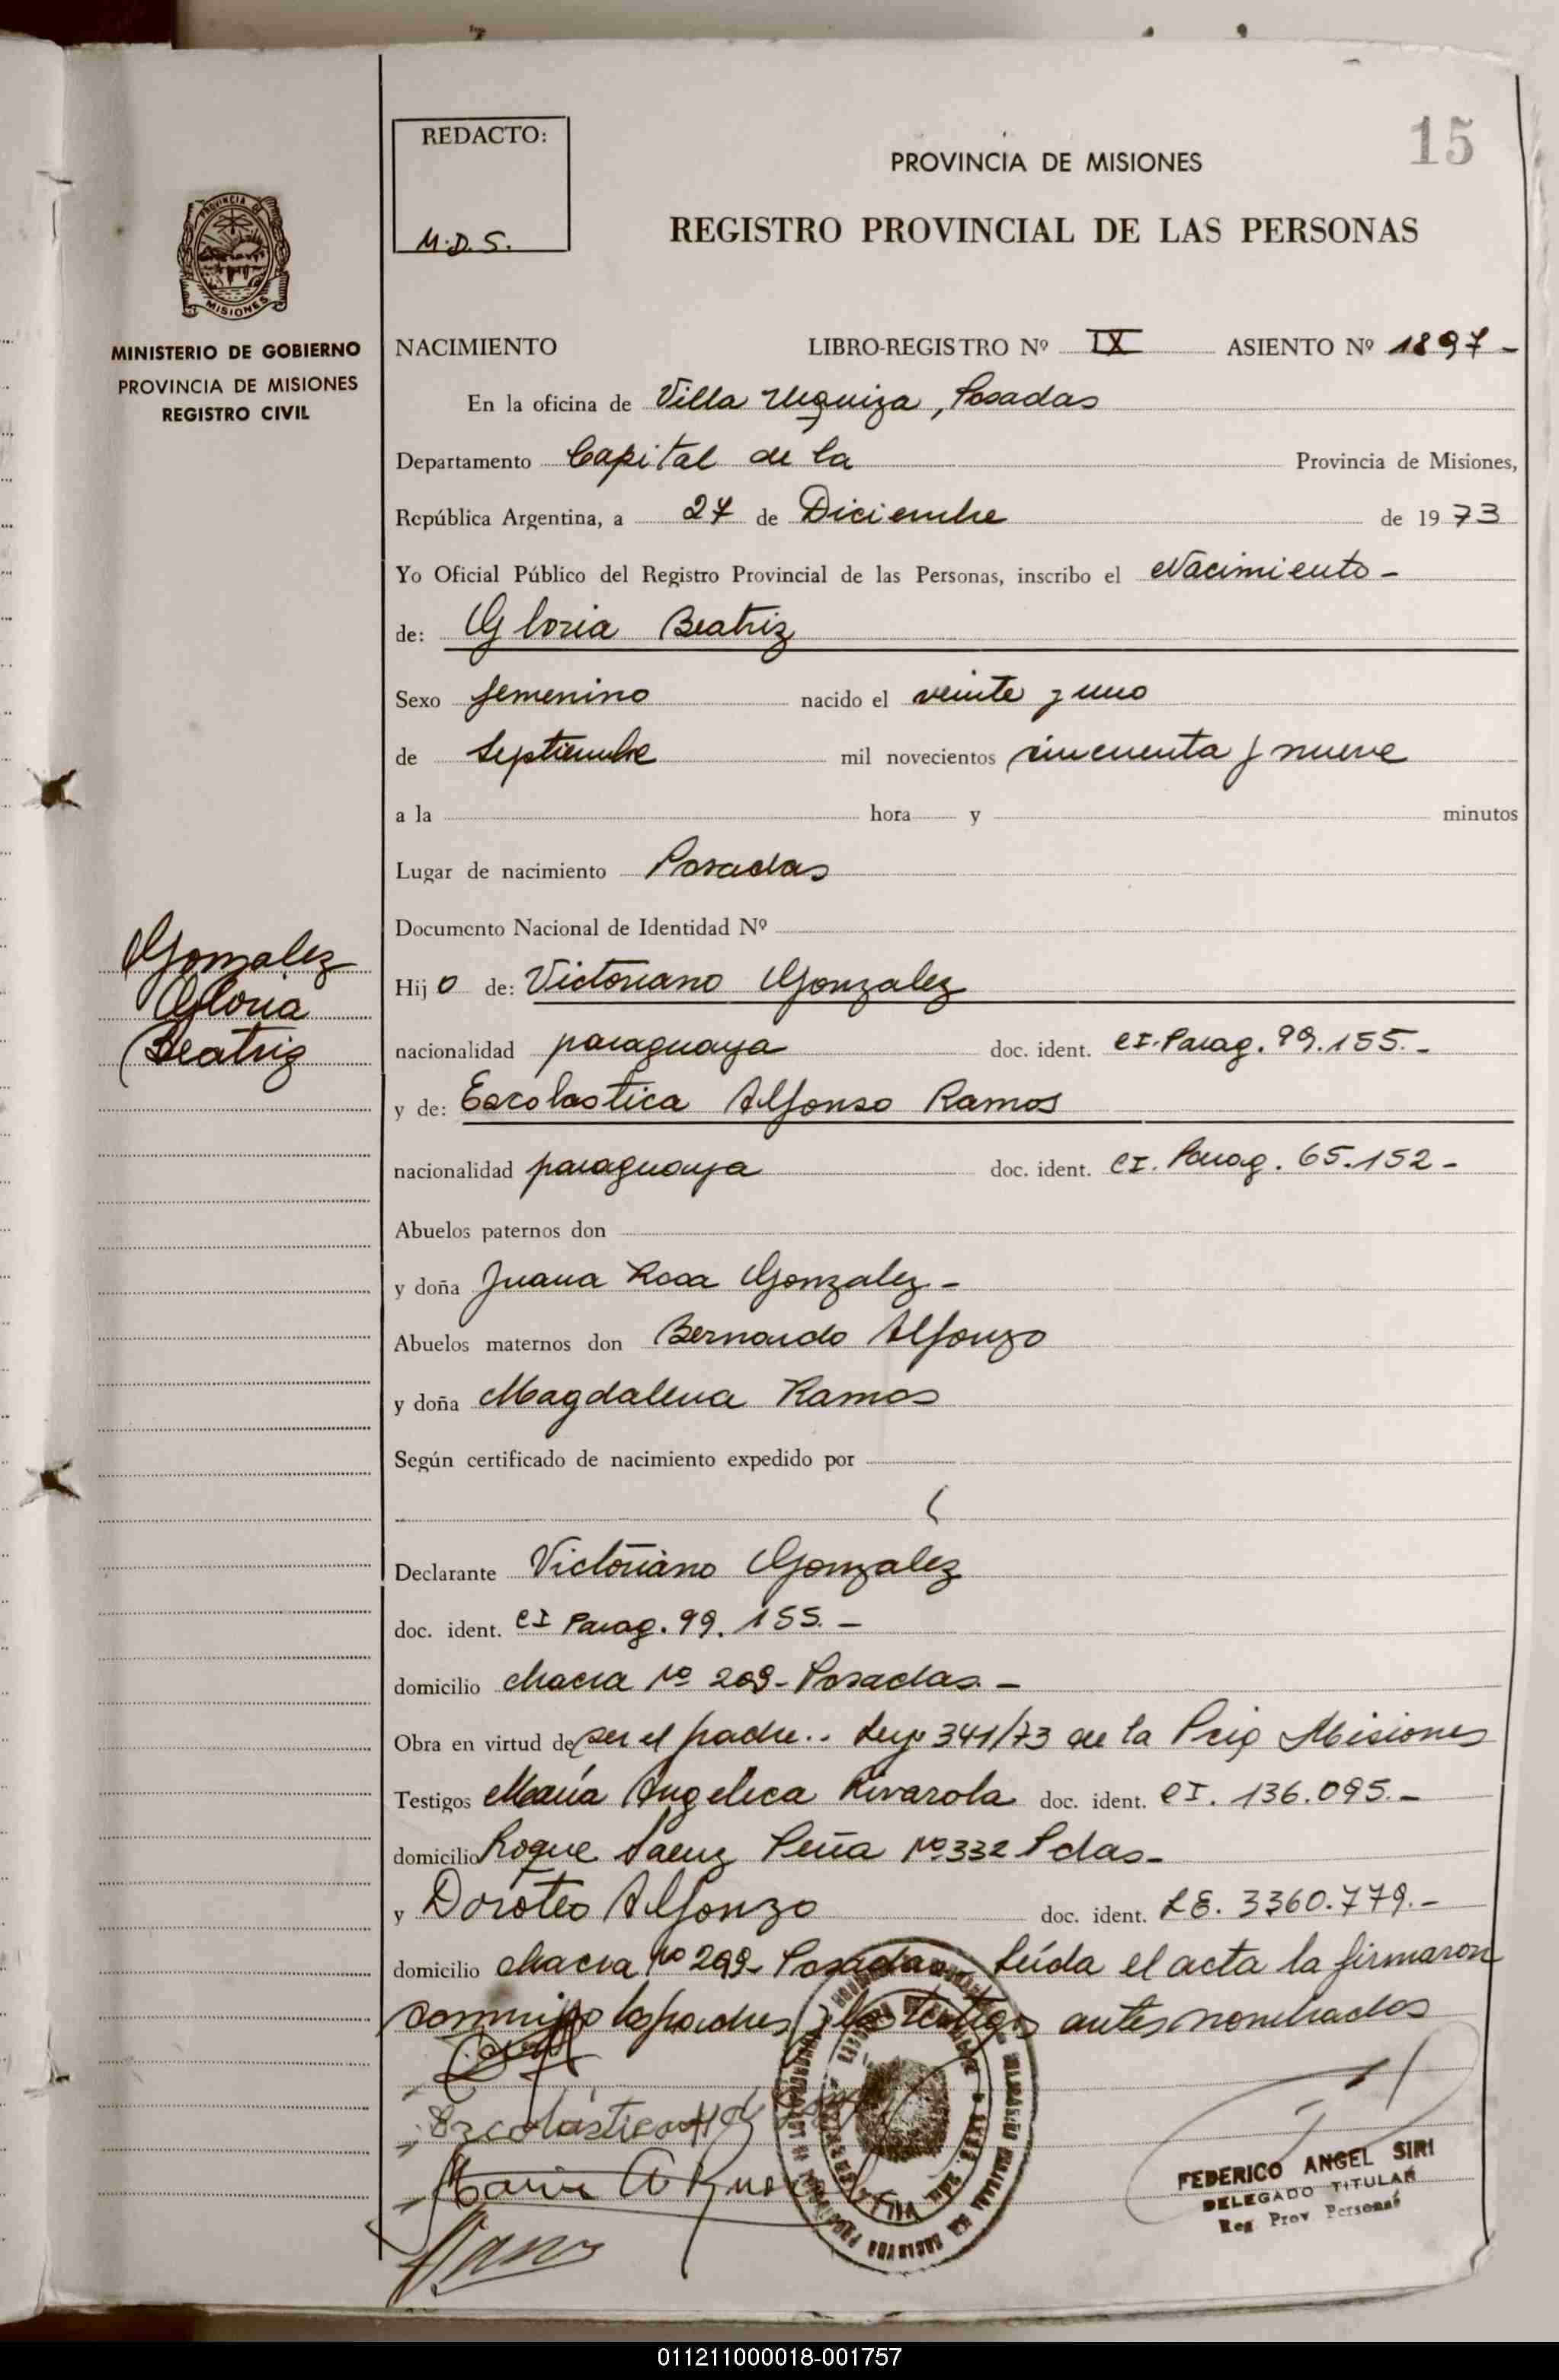 15
REDACTO:
M.D.S.
PROVINCIA DE MISIONES
REGISTRO PROVINCIAL DE LAS PERSONAS
PROVINCIA DE
MISIONES
MINISTERIO DE GOBIERNO
PROVINCIA DE MISIONES
REGISTRO CIVIL
NACIMIENTO LIBRO-REGISTRO Nº IX ASIENTO Nº 1897-
En la oficina de Villa Urquiza, Posadas
Departamento Capital de la Provincia de Misiones,
República Argentina, a 27 de Diciembre de 1973
Yo Oficial Público del Registro Provincial de las Personas, inscribo el Nacimiento-
de: Gloria Beatriz
Sexo femenino nacido el veinte y uno
de Septiembre mil novecientos cincuenta y nueve
a la hora y minutos
Lugar de nacimiento Posadas
Documento Nacional de Identidad Nº
Gonzalez
Gloria
Beatriz
Hijo de: Victoriano Gonzalez
nacionalidad paraguaya doc. ident. CI. Parag. 99.155.-
y de: Escolastica Alfonso Ramos
nacionalidad paraguaya doc. ident. CI. Parag. 65.152-
Abuelos paternos don
y doña Juana Rosa Gonzalez-
Abuelos maternos don Bernardo Alfonzo
y doña Magdalena Ramos
Según certificado de nacimiento expedido por
Declarante Victoriano Gonzalez
doc. ident. CI Parag. 99.155.-
domicilio chacra Nº 209-Posadas.-
Obra en virtud de ser el padre.. Ley 341/73 de la Misiones
Testigos María Angelica Rivarola doc. ident. CI. 136.095.-
domicilio Roque Saenz Peña Nº 332 Pdas-
y Doroteo Alfonzo doc. ident. LE. 3360.779.-
domicilio chacra Nº 299- Posadas- Leída el acta la firmaron
conmigo los padres y los testigos antes nombrados
Escolástica
Maria A
FEDERICO ANGEL SIRI
DELEGADO TITULAR
Reg Prov Personas
011211000018-001757